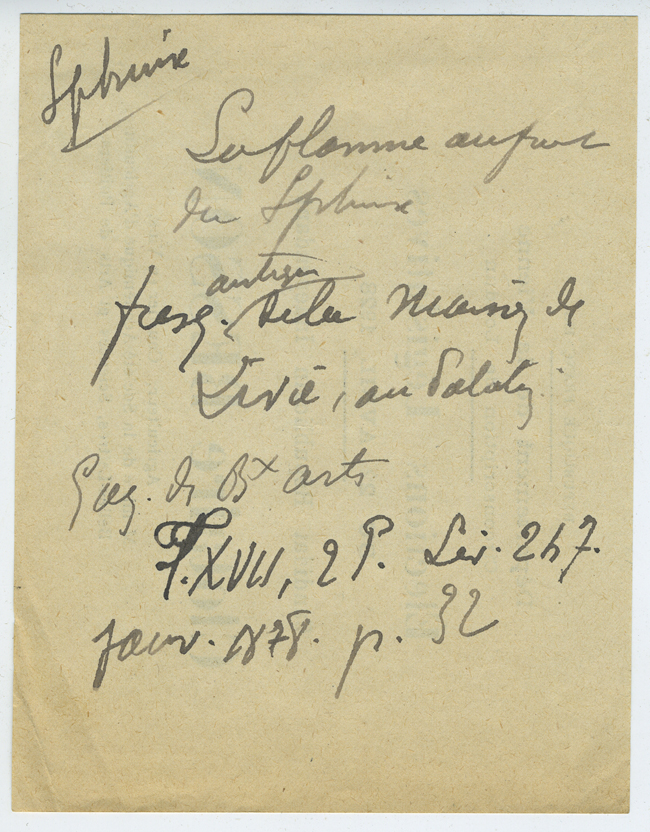 Sphinx
La flamme au front
du Sphinx
antique
fresq. de la Maison de
Livie, au Palatin
Gaz. des Bx arts
T. XVII, 2 P. Liv. 247.
Janv. 1878. p. 32